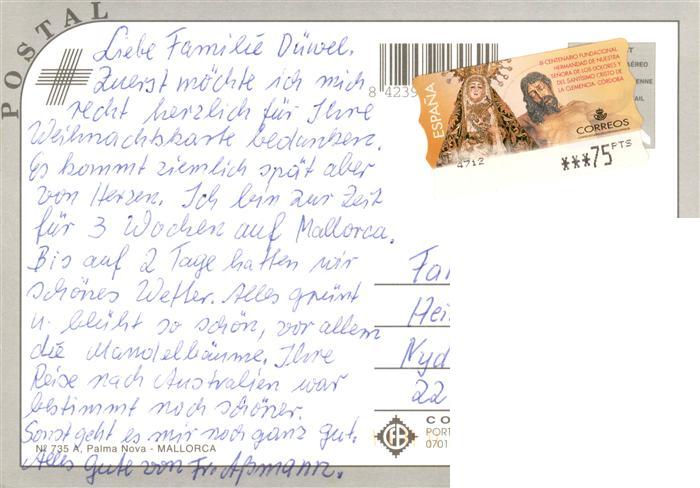 POSTAL
Liebe Familie Düwel.
Zuerst möchte ich mich
recht herzlich für Ihre
Weihnachtskarte bedanken.
Es kommt ziemlich spät aber
von Herzen. Ich bin zur Zeit
für 3 Wochen auf Mallorca.
Bis auf 2 Tage hatten wir
schönes Wetter. Alles grünt
u. blüht so schön, vor allem
die Mandelbäume. Ihre
Reise nach Australien war
bestimmt noch schöner.
Sonst geht es mir noch ganz gut.
Alles Gute von Fr. Aßmann.
Nº 735 A, Palma Nova - MALLORCA
8 4239
ESPAÑA
III CENTENARIO FUNDACIONAL
HERMANDAD DE NUESTRA
SEÑORA DE LOS DOLORES Y
DEL SANTÍSIMO CRISTO DE
LA CLEMENCIA. CÓRDOBA
CORREOS
4712
***75 PTS
T
AÉREO
ENNE
AIL
Fa
Hei
Nyd
22
CO
PORT
0701